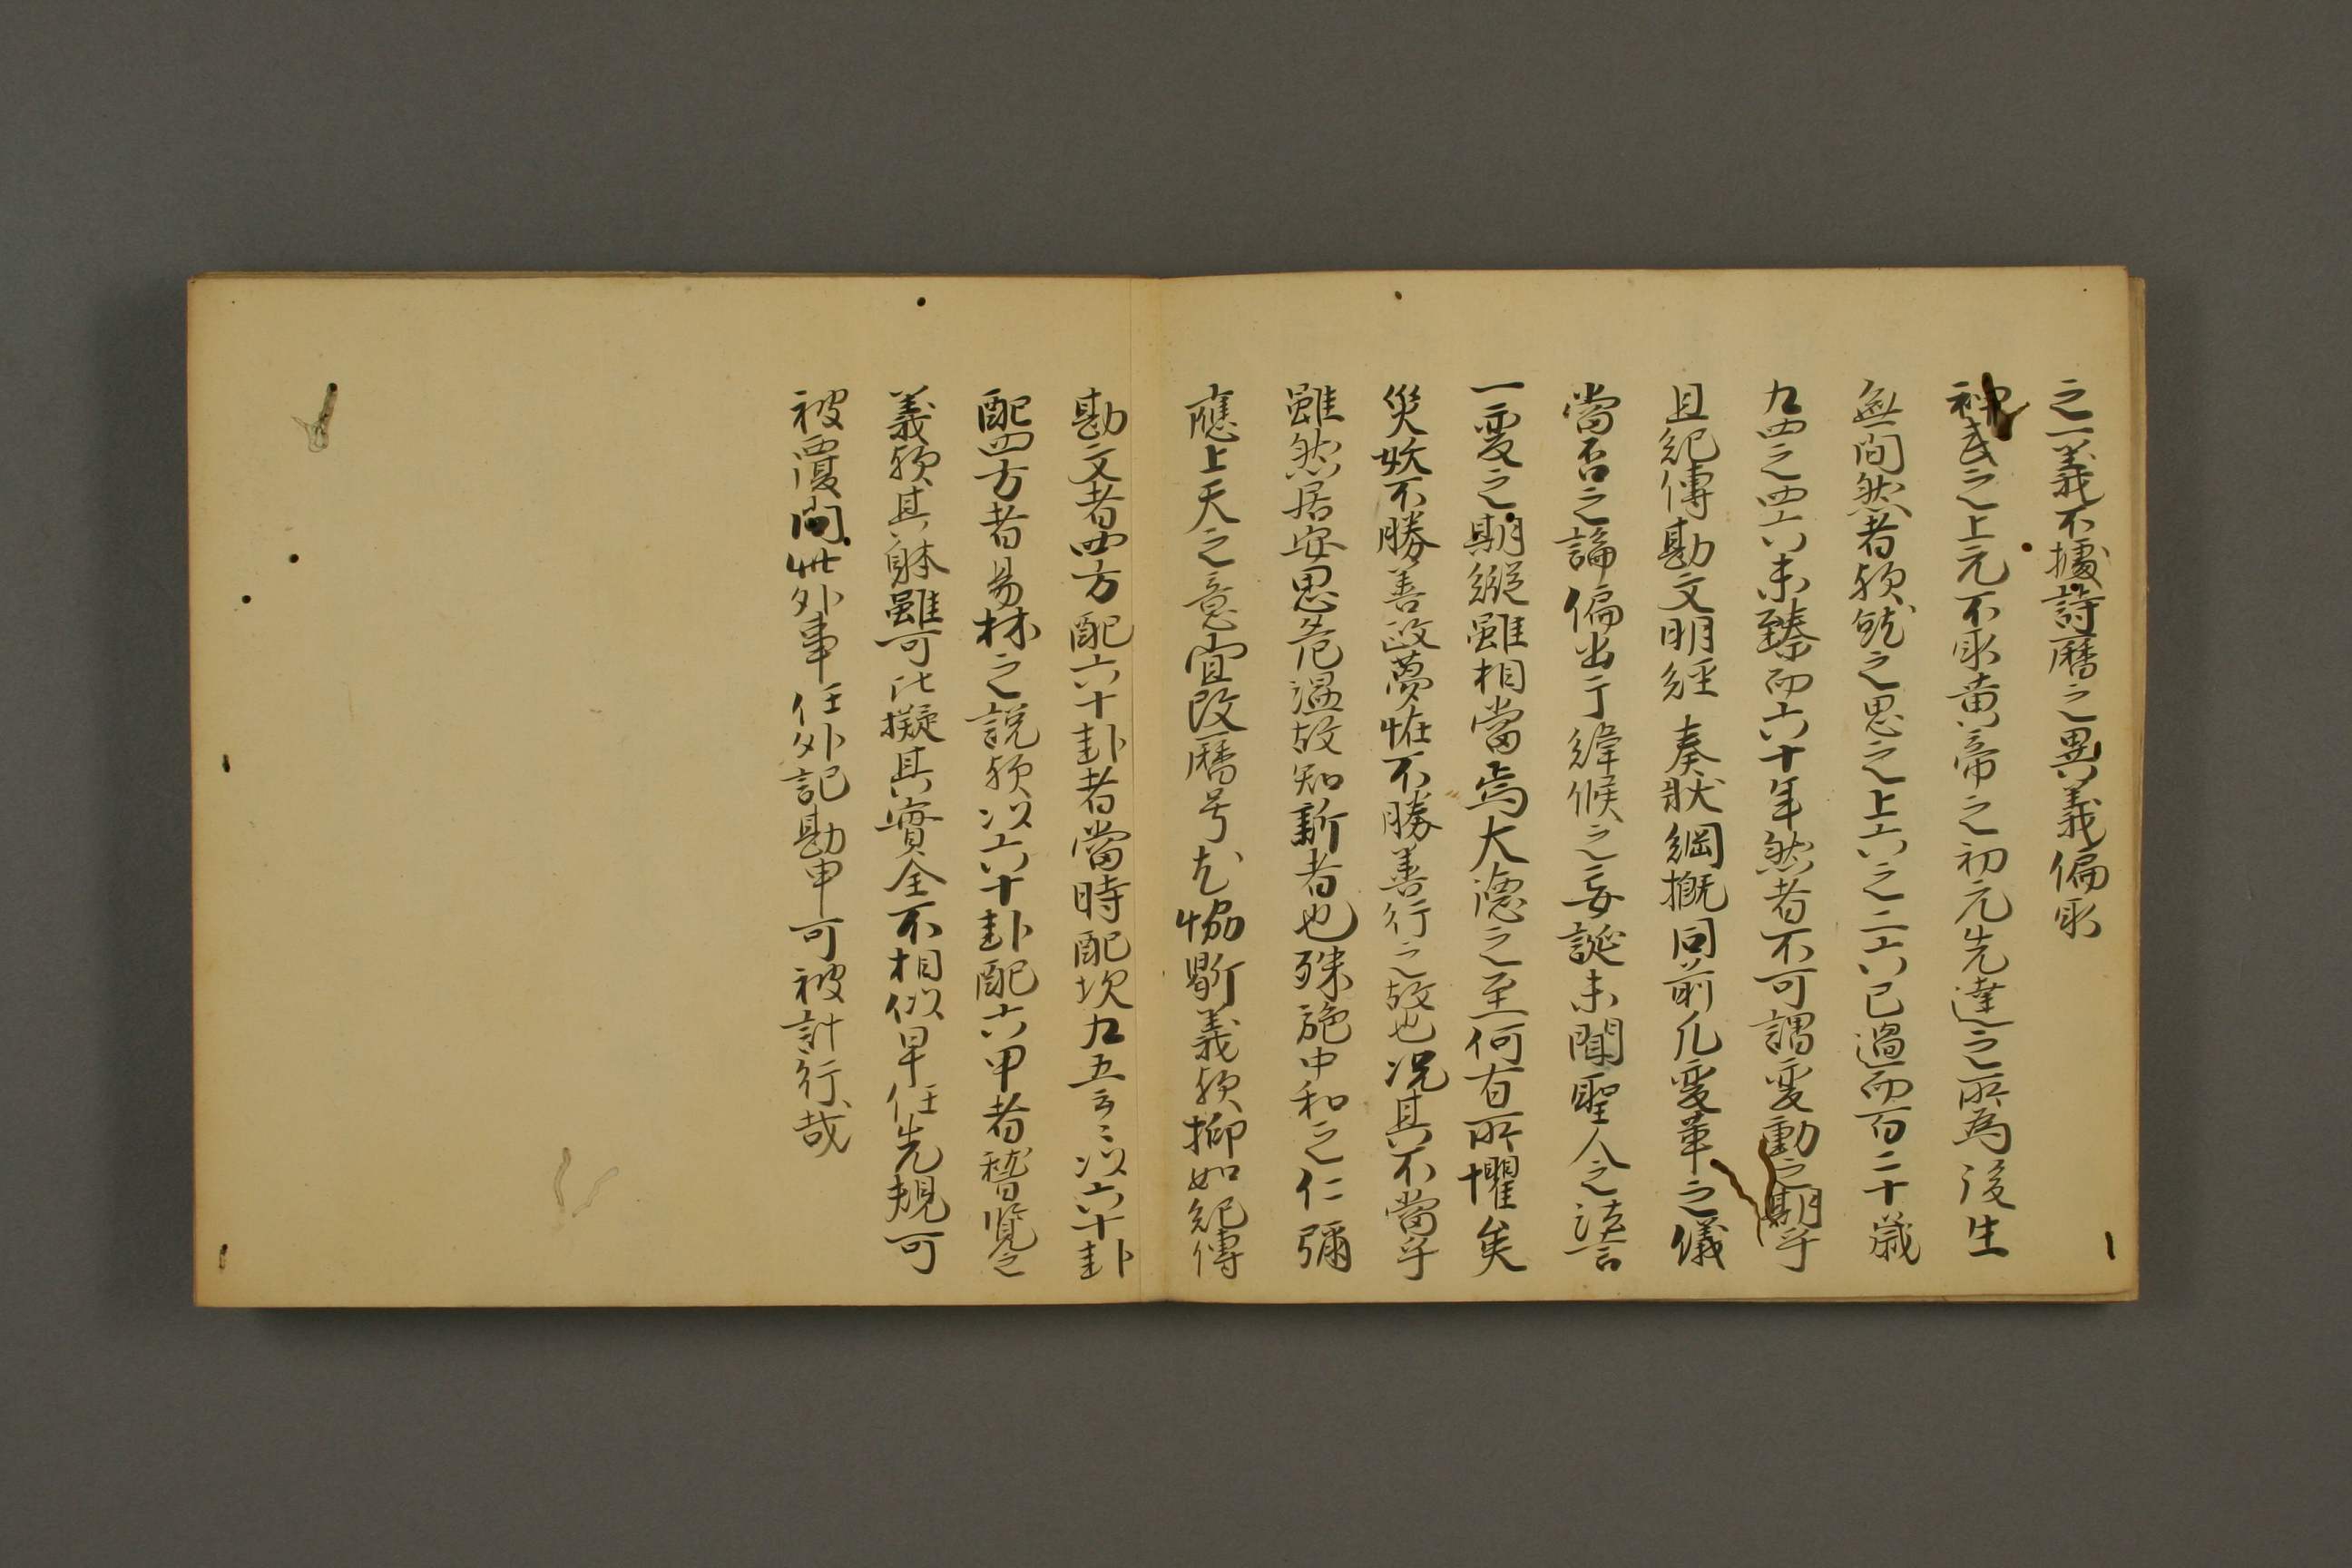 之一義不據詩曆之異義偏取
神武之上元不取黄帝之初元先達之所為後生
無間然者歟就之思之上六之二六已過而百二十歳
九四之四六未臻而六十年然者不可謂変動之期乎
且紀傳勘文明経奏状綱概同前凡変革之儀
當否之論偏出于緯候之妄誕未聞聖人之法言
一変之期縦雖相當焉大徳之至何有所懼矣
災妖不勝善政夢恠不勝善行之故也况其不當乎
雖然居安思危温故知新者也殊施中和之仁彌
應上天之意宜改曆号尤恊斯義歟抑如紀傳
勘文者四方配六十卦者當時配坎九五云々以六十卦
配四方者易林之説歟以六十卦配六甲者稽覧之
義歟其躰雖可比擬其實全不相似早任先規可
被覆問此外事任外記勘申可被計行哉